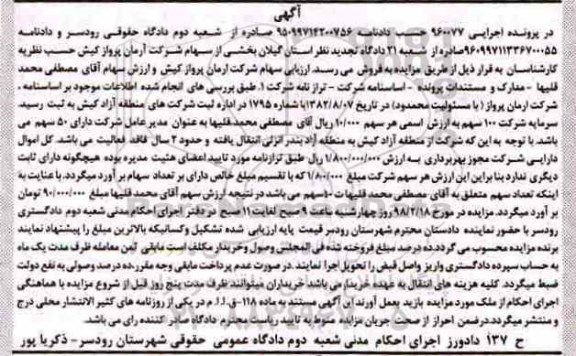 آگهی
در پرونده اجرایی ۹۶۰۰۷۷ حسب دادنامه ۹۵۰۹۹۷۱۴۲۰۰۷۵۶ صادره از شعبه دوم دادگاه حقوقی رودسر و دادنامه
۹۶۰۹۹۷۱۱۳۳۶۷۰۰۰۵۵ صادره از شعبه ۲۱ دادگاه تجدید نظر استان گیلان بخشی از سهام شرکت آرمان پرواز کیش حسب نظریه
کارشناسان به قرار ذیل از طریق مزایده به فروش می رسد. ارزیابی سهام شرکت آرمان پرواز کیش و ارزش سهام آقای مصطفی محمد
قلیها -مدارک و مستندات پرونده - اساسنامه شرکت - تراز نامه شرکت ۱. طبق بررسی های انجام شده اطلاعات موجود بر اساسنامه ،
شرکت آرمان پرواز ( با مسئولیت محدود) در تاریخ ۱۳۸۲/۸/۰۷ با شماره ۱۷۹۵ در اداره ثبت شرکت های منطقه آزاد کیش به ثبت رسید.
سرمایه شرکت ۱۰۰ سهم به ارزش اسمی هر سهم ۱۰/۰۰۰ ریال آقای مصطفی محمد قلیها به عنوان مدیر عامل شرکت دارای ۵۰ سهم می
باشد. با توجه به این که شرکت از منطقه آزاد کیش به منطقه آزاد بندر انزلی انتقال یافته و حدود ۲ سال فاقد فعالیت می باشد. کل اموال
دارایی شرکت مجوز بهره برداری به ارزش ۱/۸۰۰/۰۰۰/۰۰۰ ریال طبق ترازنامه مورد تایید اعضای هئیت مدیره بوده هیچگونه دارای ثابت
دیگری ندارد بنا براین این ارزش هر سهم شرکت مبلغ ۱/۸۰۰/۰۰۰ که با تقسیم مبلغ خالص دارای بر تعداد سهام بر آورد میگردد. با عنایت به
اینکه تعداد سهم متعلق به آقای مصطفی محمد قلیها ۵۰ سهم می باشد در نتیجه ارزش سهم آقای محمد قلیها مبلغ ۹۰/۰۰۰/۰۰۰ تومان
بر آورد میگردد. مزایده در مورخ ۹۸/۲/۱۸ روز چهارشنبه ساعت ۹ صبح لغایت ۱۱ صبح در دفتر اجرای احکام مدنی شعبه دوم دادگستری
رودسر با حضور نماینده دادستان محترم شهرستان رودسر قیمت پایه ارزیابی شده تشکیل و کسانیکه بالاترین مبلغ را پیشنهاد نمایند
برنده مزایده محسوب می گردد. ده درصد مبلغ فروخته شده فی المجلس وصول و خریدار مکلف است مابقی ثمن معامله ظرف مدت یک ماه
به حساب سپرده دادگستری واریز واصل قبض را تحویل اجرا نمایند. در صورت عدم پرداخت مابقی وجه مقرر، ده درصد وصولی به نفع دولت
ضبط میگردد. کلیه هزینه های انتقال به عهده خریدار می باشد. خریداران میتوانند ظرف مدت پنج روز قبل از شروع مزایده با هماهنگی
اجرای احکام از ملک مورد مزایده بازدید بعمل آورند این آگهی مستند به ماده ۱۱۸-ق.ا.ا.م در یکی از روزنامه های کثیر الانتشار محلی درج
و منتشر میگردد. در ضمن احراز از صحت جریان مزایده منوط به تایید ریاست محترم دادگاه صادر کننده رای می باشد.
ح ۱۳۷ دادورز اجرای احکام مدنی شعبه دوم دادگاه عمومی حقوقی شهرستان رودسر- ذکریا پور